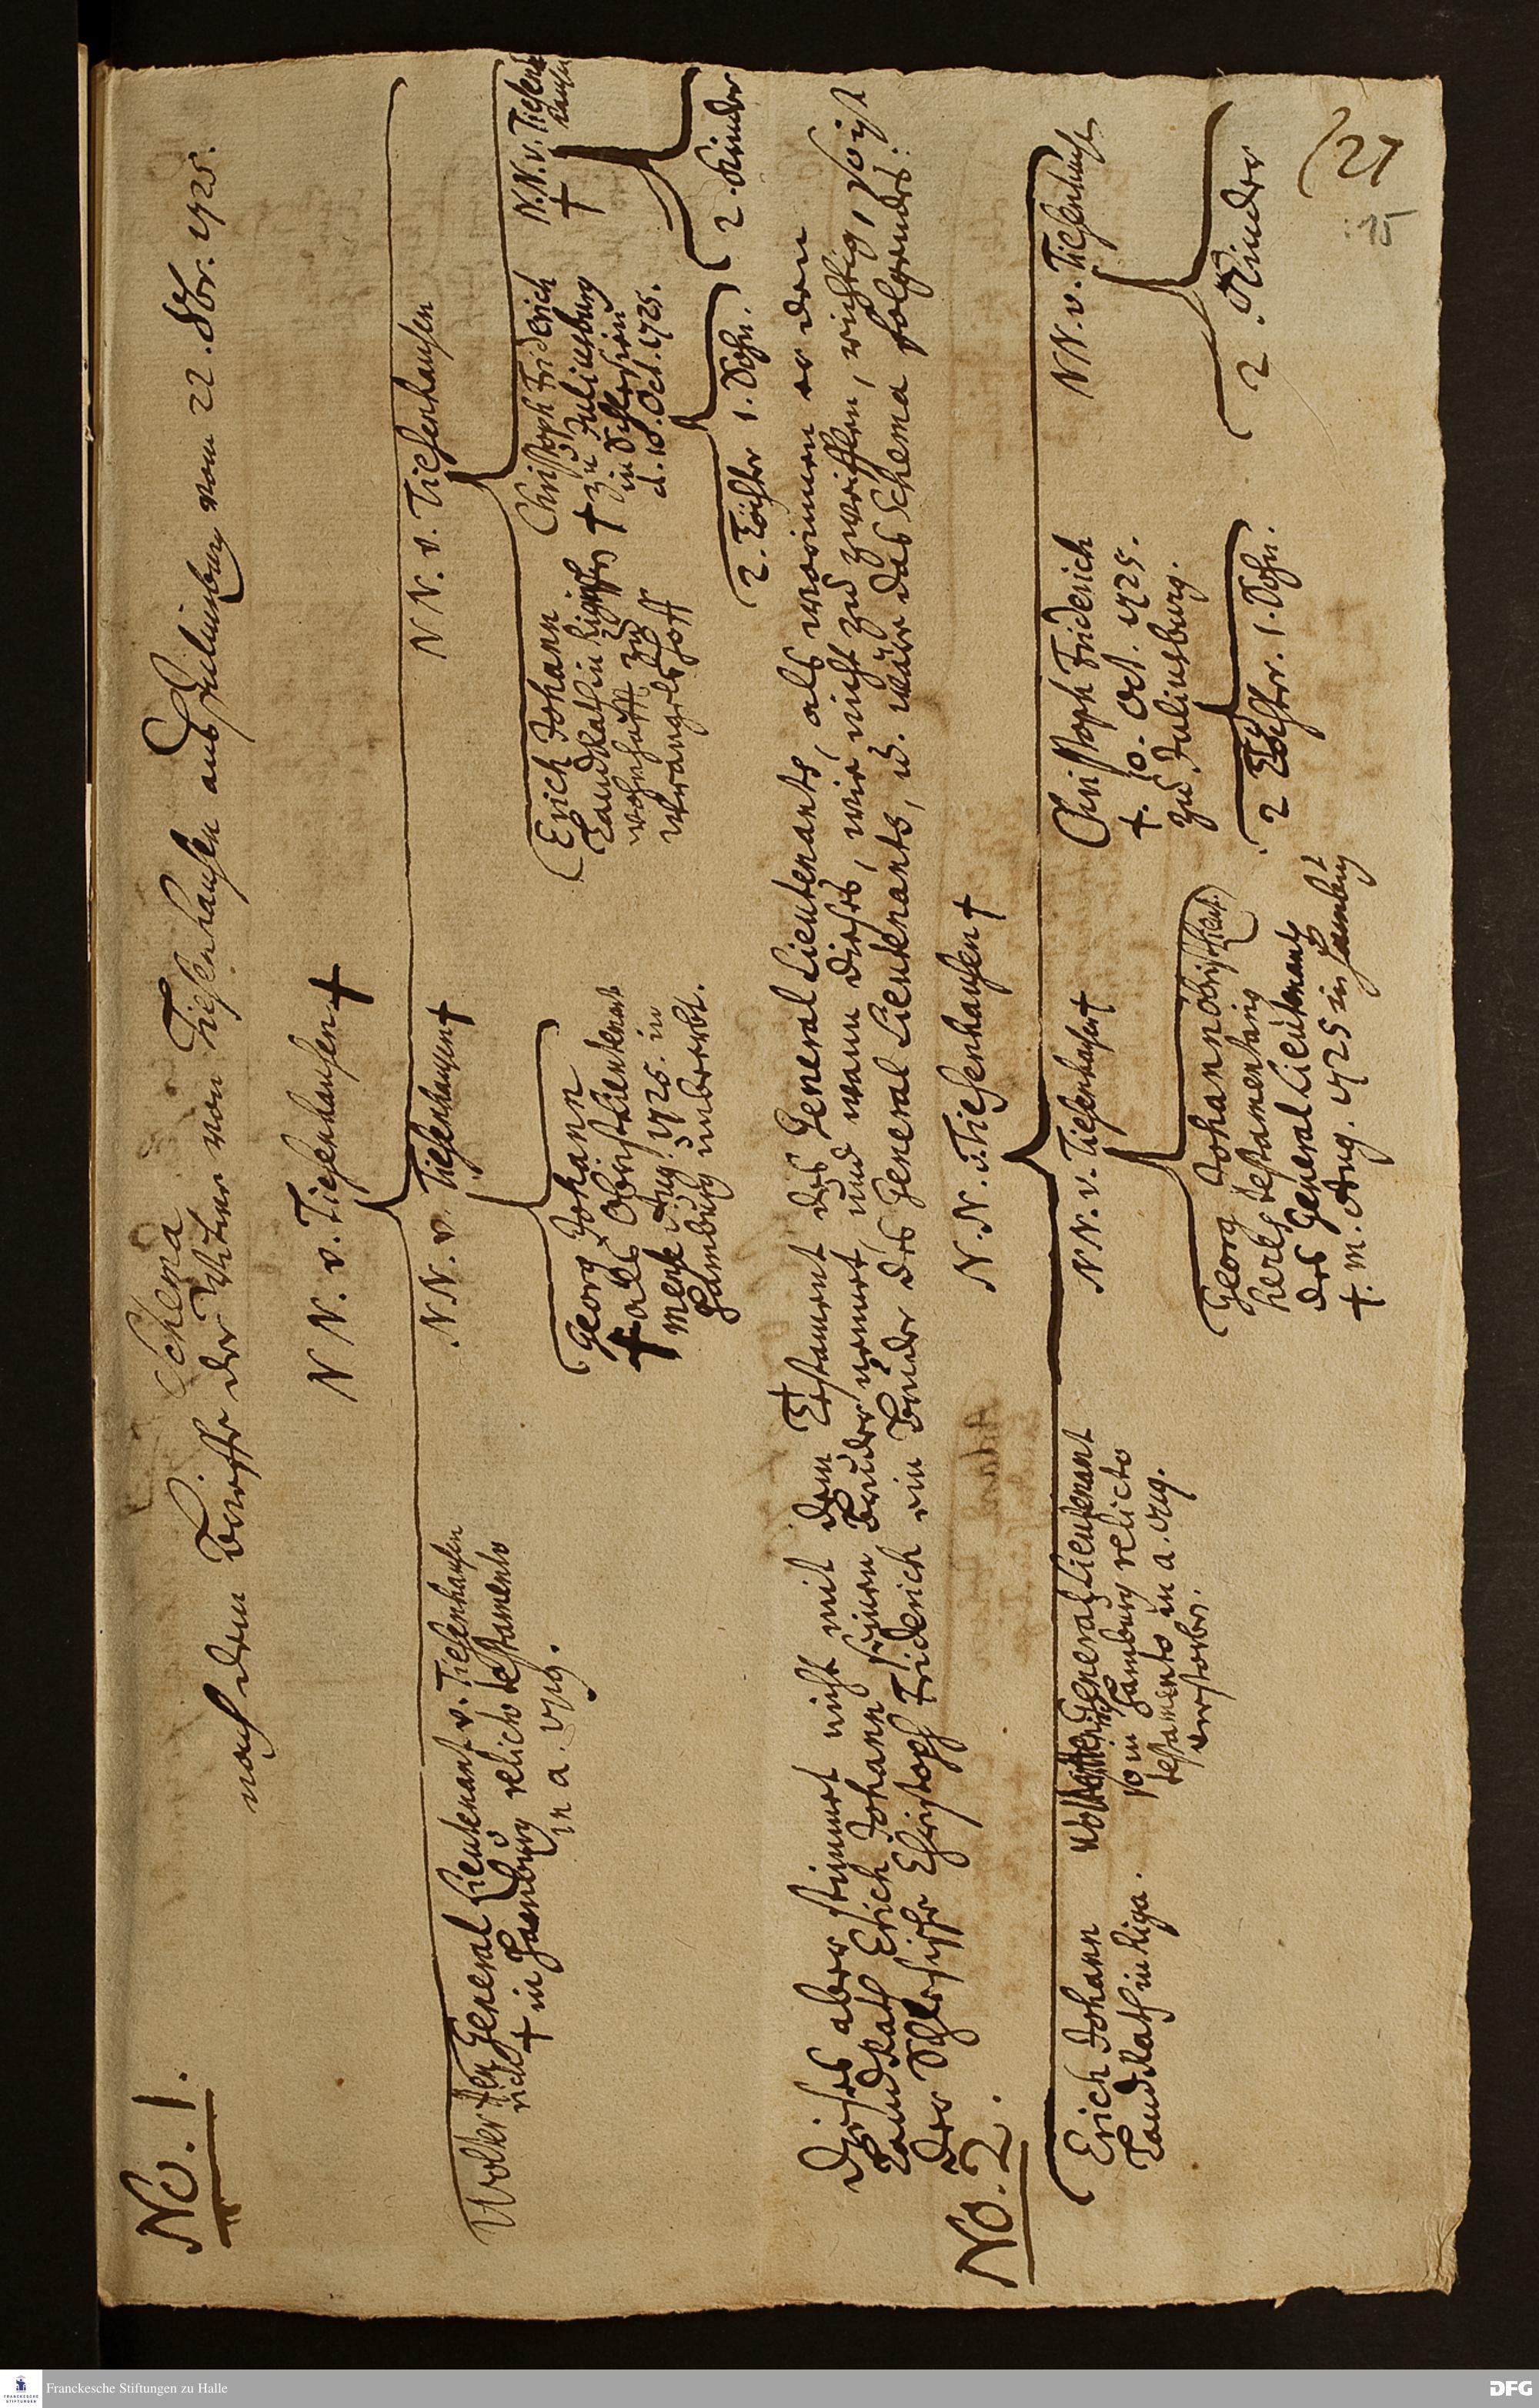 No. 1.
Schema
nach dem Brieffe der Witwe von Tiesenhausen aus Juliusburg vom 22. 8br. 1725.
N N. v. Tiesenhausen †
Wolter Hen General Lieutenant v. Tiesenhausen
rich † in Hamburg relicto testamento
in a. 1719.
N N. v. Tiesenhausen †
N N. v. Tiesenhausen
Georg Johann
† als Obristlieutenant
mense Aug. 1725. in
Hamburg unbeerbt.
Erich Johann
LandRath in Riga
wohnhafft zu
Wrangelshoff
Christoph Friderich
† zu Juliusburg
in Schlesien
d. 10. Oct. 1725.
N. N. v. Tiesen
hausen
†
2. Töchter 1. Sohn.
2. Kinder
Dieses aber stimmet nicht mit dem Testament des General Lieutenants, als worinnen er den
LandRath Erich Johann seinen Bruder nennet, und wann dieses, wie nicht zu zweifflen, richtig, so ist
der Schlesische Christoph Friderich ein Bruder des General Lieutenants, u. wäre das Schema folgendes:
No. 2.
N. N. v. Tiesenhausen †
Erich Johann
LandRath in Riga.
General Lieutenant
so in Hamburg relicto
testamento in a. 1719.
verstorben.
N N. v. Tiesenhausen †
Christoph Friderich
†. 10. Oct. 1725.
zu Juliusburg.
N N. v. Tiesenhausen
Georg Johann Obristlieut.
heres testamentarius
des General Lieutenants
†. m. Aug. 1725 in Hamburg
2 Töchter. 1. Sohn.
2. Kinder
(21
15
Franckesche Stiftungen zu Halle
FRANCKESCHE
STIFTUNGEN
DFG